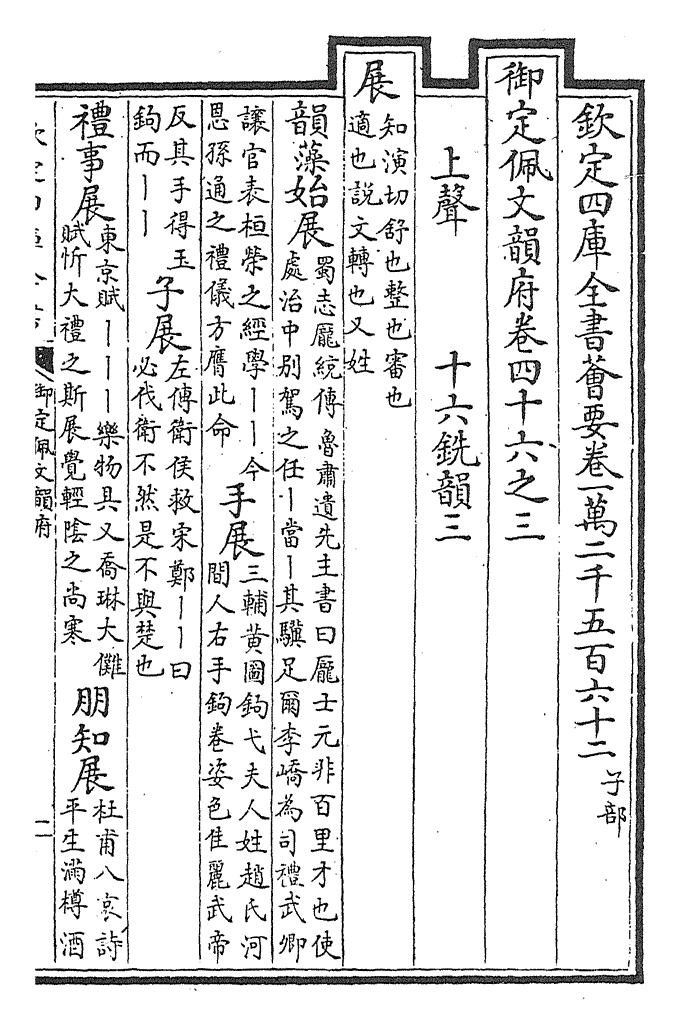 欽定四庫全書薈要卷一萬二千五百六十二子部
御定佩文韻府卷四十六之三
上聲 十六銑韻三
展知演切舒也整也審也
適也說文轉也又姓
韻藻始展蜀志龎統傳魯肅遺先主書曰龎士元非百里才也使
處治中别駕之任丨當丨其驥足爾李嶠為司禮武卿
讓官表桓榮之經學丨丨今
恩孫通之禮儀方膺此命
手展三輔黃圖鉤弋夫人姓趙氏河
間人右手鉤卷姿色佳麗武帝
反其手得玉
鉤而丨丨
子展左傳衛侯救宋鄭丨丨曰
必伐衛不然是不與楚也
禮事展東京賦丨丨丨樂物具又喬琳大儺
賦忻大禮之斯展覺輕陰之尚寒
朋知展杜甫八哀詩
平生滿樽酒
御定佩文韻府